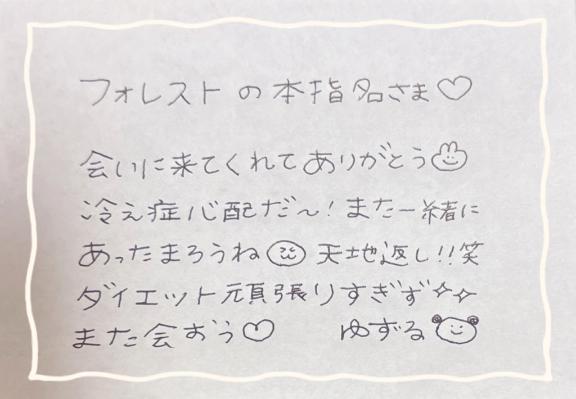 フォレストの本指名さま♡
会いに来てくれてありがとう
冷え症心配だ〜！また一緒に
あったまろうね 天地返し!!笑
ダイエット頑張りすぎず✧✧
また会おう♡ ゆずる